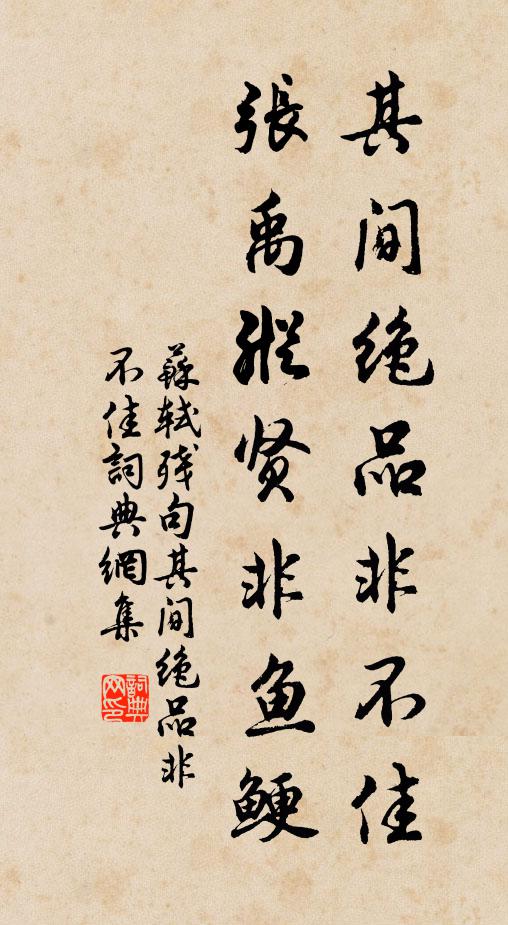 其间绝品非不佳
張禹縱贤非鱼鲠
蘇轼残句其间绝品非
不佳詞典網集
詞典
网印